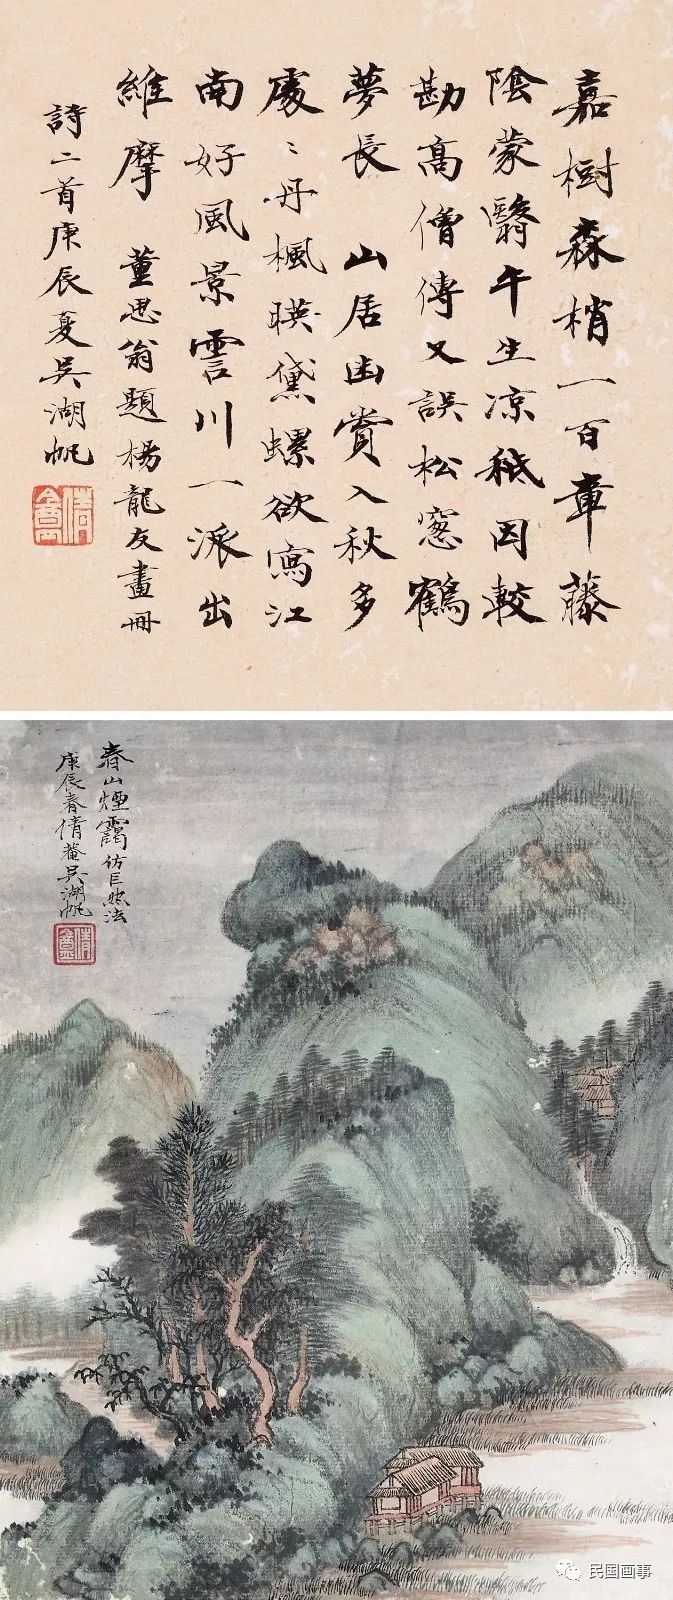 嘉樹森梢一百章藤
陰蒙翳午生凉秖因較
勘高僧傳又誤松窓鶴
夢長 山居幽賞入秋多
處〻丹楓暎黛螺欲寫江
南好風景雲川一派出
維摩 董思翁題楊龍友畫冊
詩二首庚辰夏吳湖帆
春山煙靄仿巨然法
庚辰春倩菴吳湖帆
民国画事